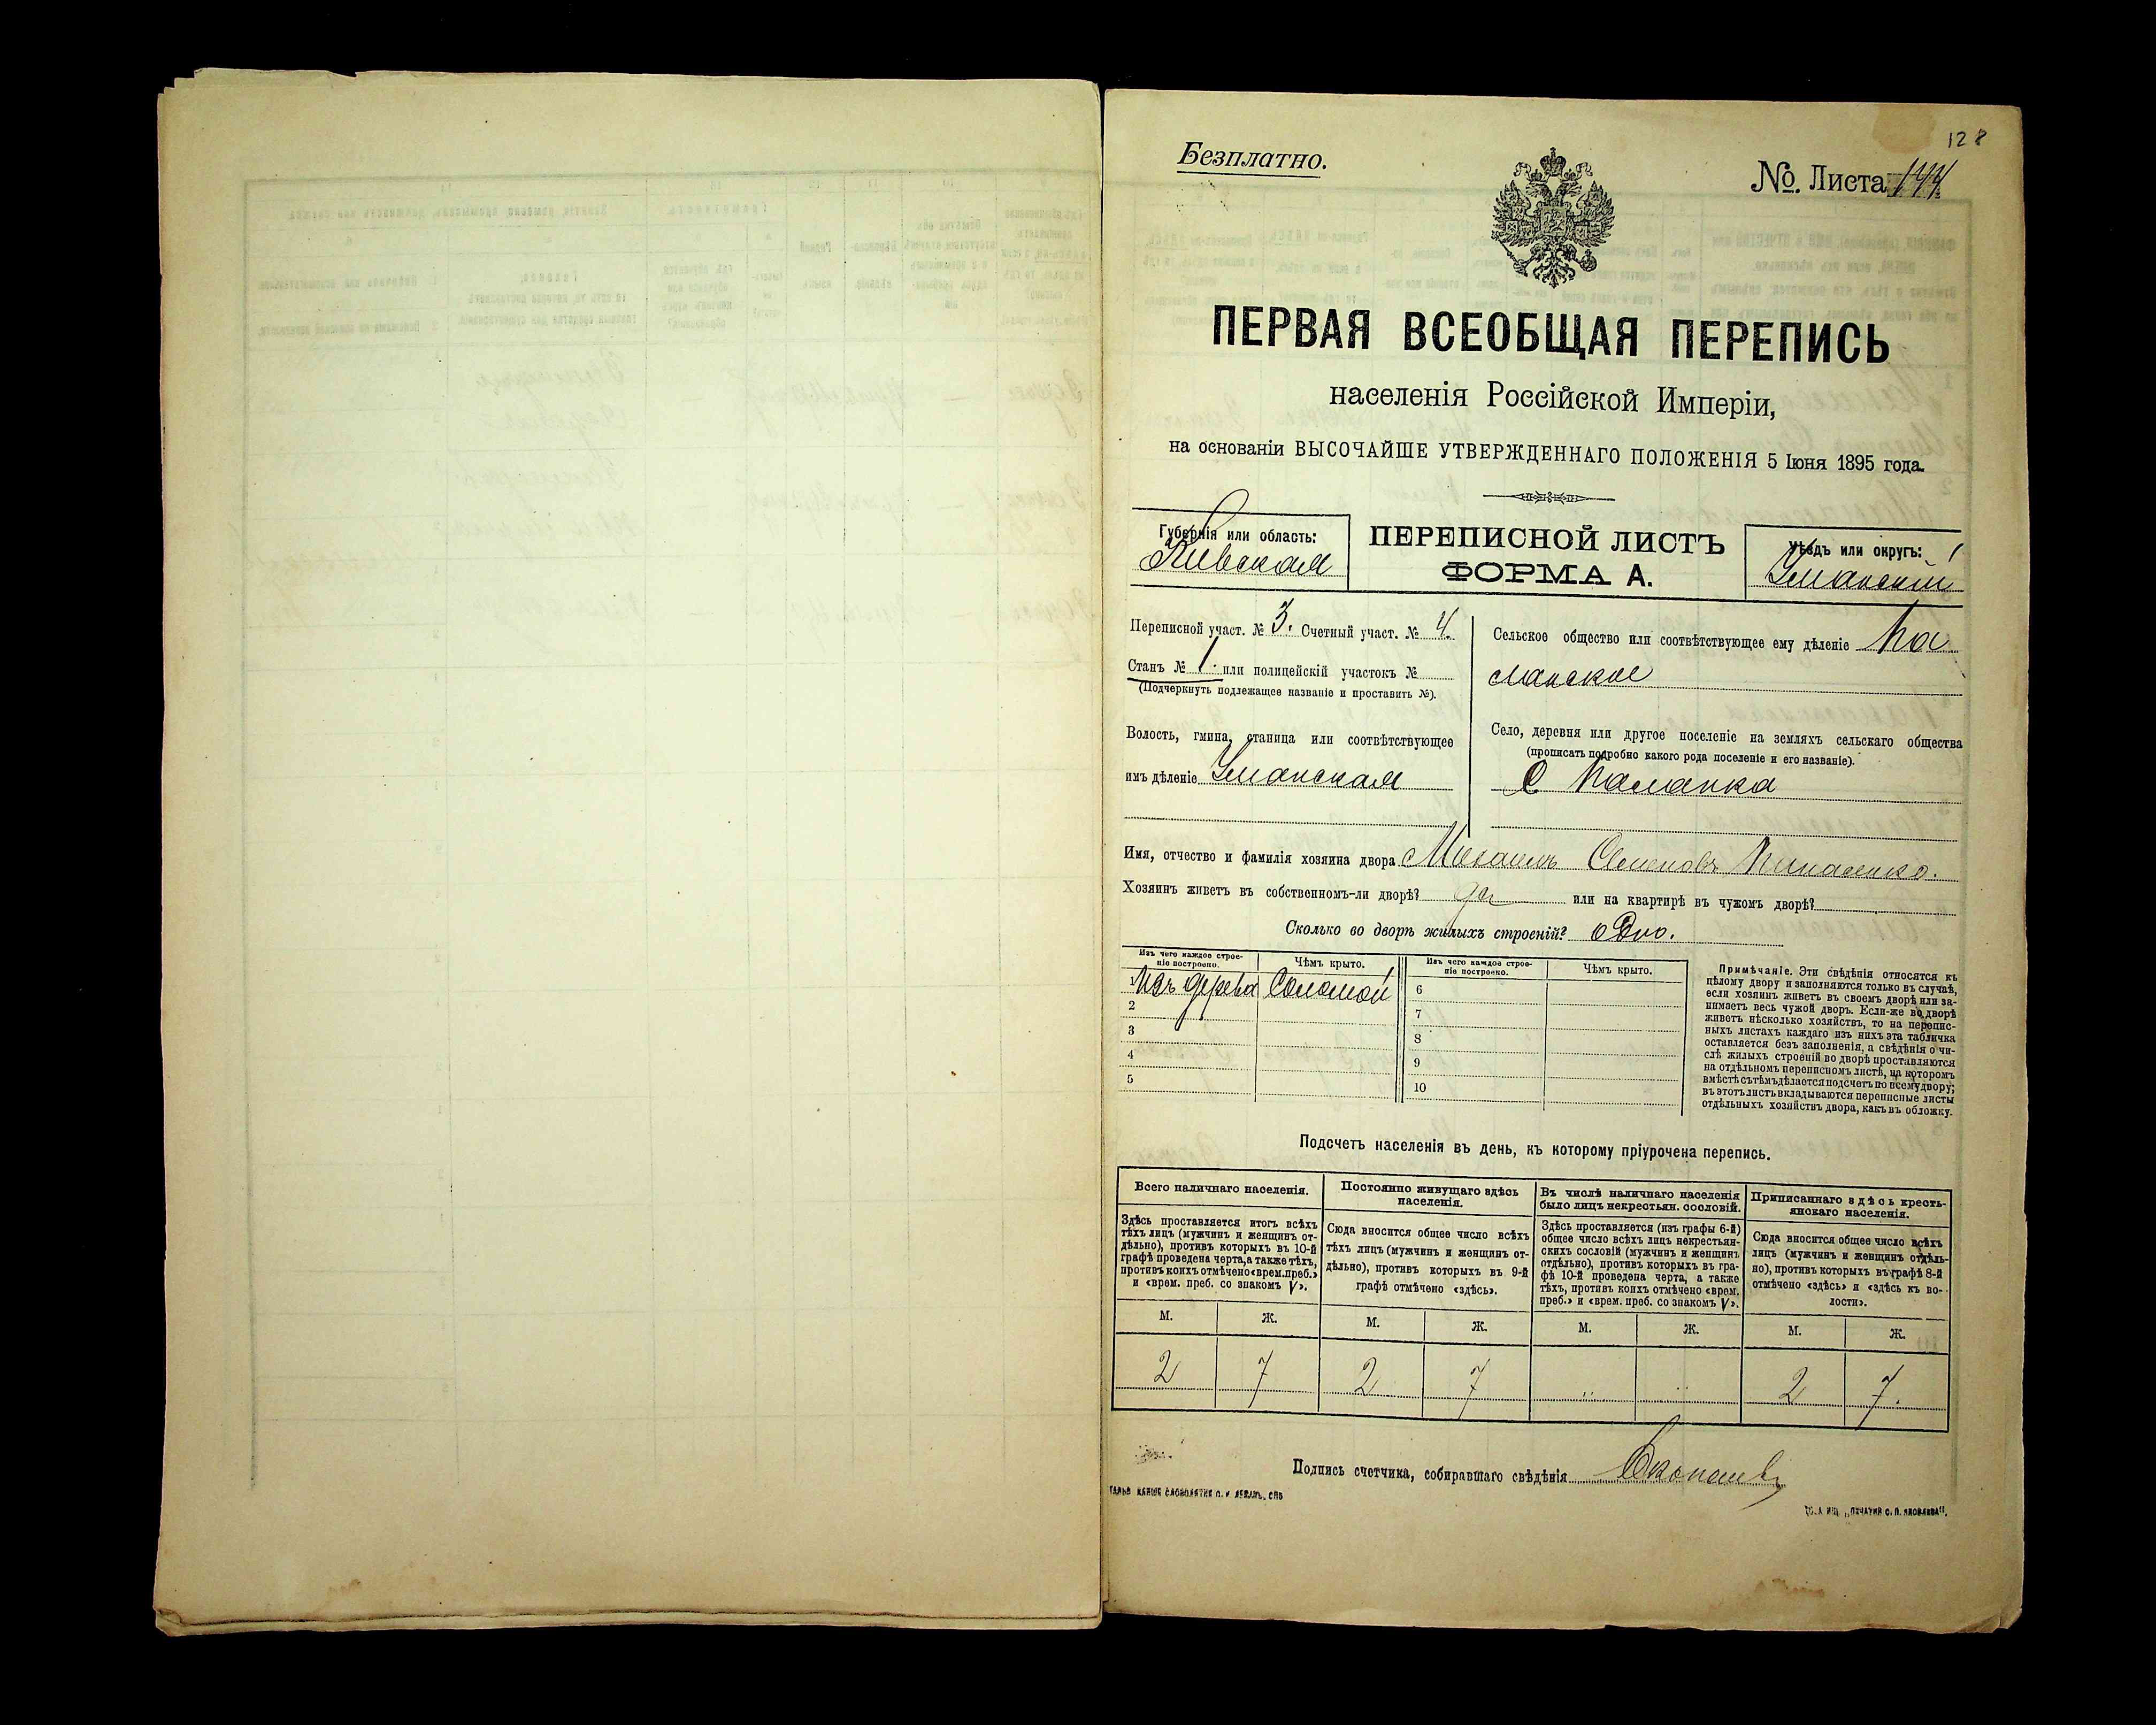 128
Безплатно.
№. Листа 144
ПЕРВАЯ ВСЕОБЩАЯ ПЕРЕПИСЬ
населенія Россійской Имперіи,
на основаніи ВЫСОЧАЙШЕ УТВЕРЖДЕННАГО ПОЛОЖЕНІЯ 5 Іюня 1895 года.
Губернія или область:
Кіевская
ПЕРЕПИСНОЙ ЛИСТЪ
ФОРМА А.
Уѣздъ или округъ:
Уманскій
Переписной участ. № 3. Счетный участ. № 4.
Станъ № 1. или полицейскій участокъ №
(Подчеркнуть подлежащее названіе и проставить №).
Волость, гмина, станица или соотвѣтствующее
имъ дѣленіе Уманская
Сельское общество или соотвѣтствующее ему дѣленіе Па
ланское
Село, деревня или другое поселеніе на земляхъ сельскаго общества
(прописать подробно какого рода поселеніе и его названіе).
С Паланка
Имя, отчество и фамилія хозяина двора Михаилъ Семеновъ
Хозяинъ живетъ въ собственномъ-ли дворѣ? да или на квартирѣ въ чужомъ дворѣ?
Сколько во дворѣ жилыхъ строеній? Одно.
Изъ чего каждое строе-
ніе построено.
Чѣмъ крыто.
Изъ чего каждое строе-
ніе построено.
Чѣмъ крыто.
1 Изъ дерева Соломой 6
2 7
3 8
4 9
5 10
Примѣчаніе. Эти свѣдѣнія относятся къ
цѣлому двору и заполняются только въ случаѣ,
если хозяинъ живетъ въ своемъ дворѣ или за-
нимаетъ весь чужой дворъ. Если-же во дворѣ
живетъ нѣсколько хозяйствъ, то на перепис-
ныхъ листахъ каждаго изъ нихъ эта табличка
оставляется безъ заполненія, а свѣдѣнія о чи-
слѣ жилыхъ строеній во дворѣ проставляются
на отдѣльномъ переписномъ листѣ, на которомъ
вмѣстѣ съ тѣмъ дѣлается подсчетъ по всему двору;
въ этотъ листъ вкладываются переписные листы
отдѣльныхъ хозяйствъ двора, какъ въ обложку.
Подсчетъ населенія въ день, къ которому пріурочена перепись.
Всего наличнаго населенія.
Здѣсь проставляется итогъ всѣхъ
тѣхъ лицъ (мужчинъ и женщинъ от-
дѣльно), противъ которыхъ въ 10-й
графѣ проведена черта, а также тѣхъ,
противъ коихъ отмѣчено «врем. преб.»
и «врем. преб. со знакомъ V».
Постоянно живущаго здѣсь
населенія.
Сюда вносится общее число всѣхъ
тѣхъ лицъ (мужчинъ и женщинъ от-
дѣльно), противъ которыхъ въ 9-й
графѣ отмѣчено «здѣсь».
Въ числѣ наличнаго населенія
было лицъ некрестьян. сословій.
Здѣсь проставляется (изъ графы 6-й)
общее число всѣхъ лицъ некрестьян-
скихъ сословій (мужчинъ и женщинъ
отдѣльно), противъ которыхъ въ гра-
фѣ 10-й проведена черта, а также
тѣхъ, противъ коихъ отмѣчено «врем.
преб.» и «врем. преб. со знакомъ V».
Приписаннаго здѣсь кресть-
янскаго населенія.
Сюда вносится общее число всѣхъ
лицъ (мужчинъ и женщинъ отдѣль-
но), противъ которыхъ въ графѣ 8-й
отмѣчено «здѣсь» и «здѣсь къ во-
лости».
М. Ж. М. Ж. М. Ж. М. Ж.
2 7 2 7 .. .. 2 7.
Подпись счетчика, собиравшаго свѣдѣнія